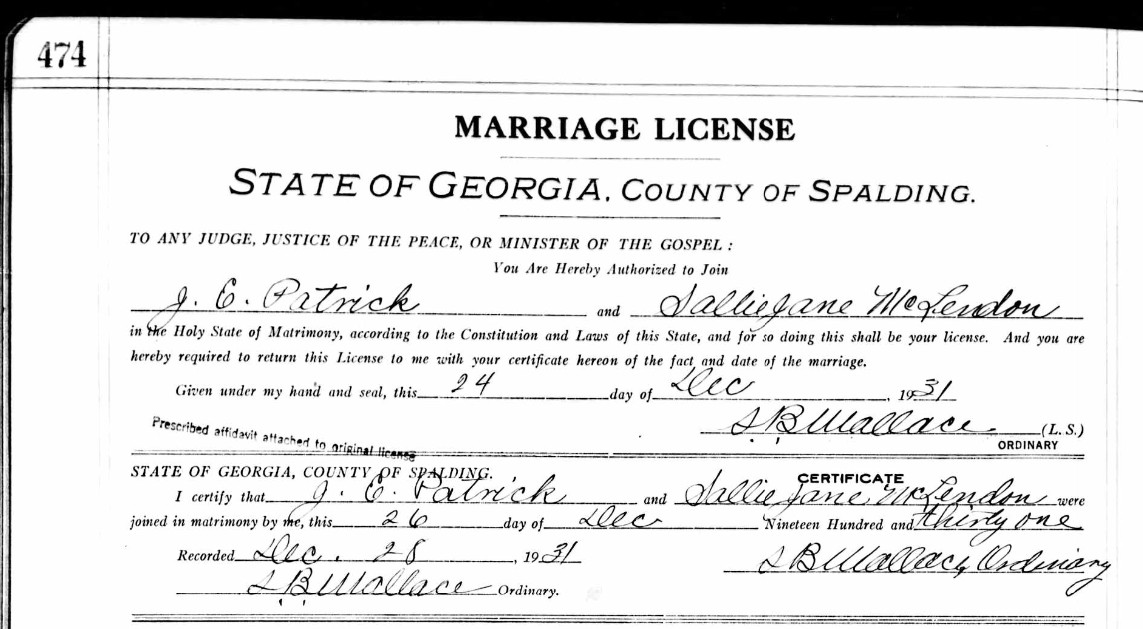 474
MARRIAGE LICENSE
STATE OF GEORGIA, COUNTY OF SPALDING.
TO ANY JUDGE, JUSTICE OF THE PEACE, OR MINISTER OF THE GOSPEL :
You Are Hereby Authorized to Join
J. E. Patrick and Sallie Jane McLendon
in the Holy State of Matrimony, according to the Constitution and Laws of this State, and for so doing this shall be your license. And you are
hereby required to return this License to me with your certificate hereon of the fact and date of the marriage.
Given under my hand and seal, this 24 day of Dec, 1931
S B Wallace (L. S.)
ORDINARY
Prescribed affidavit attached to original license
STATE OF GEORGIA, COUNTY OF SPALDING. CERTIFICATE
I certify that J. E. Patrick and Sallie Jane McLendon were
joined in matrimony by me, this 26 day of Dec Nineteen Hundred and thirty one
Recorded Dec. 28, 1931 S B Wallace, Ordinary
S B Wallace Ordinary.